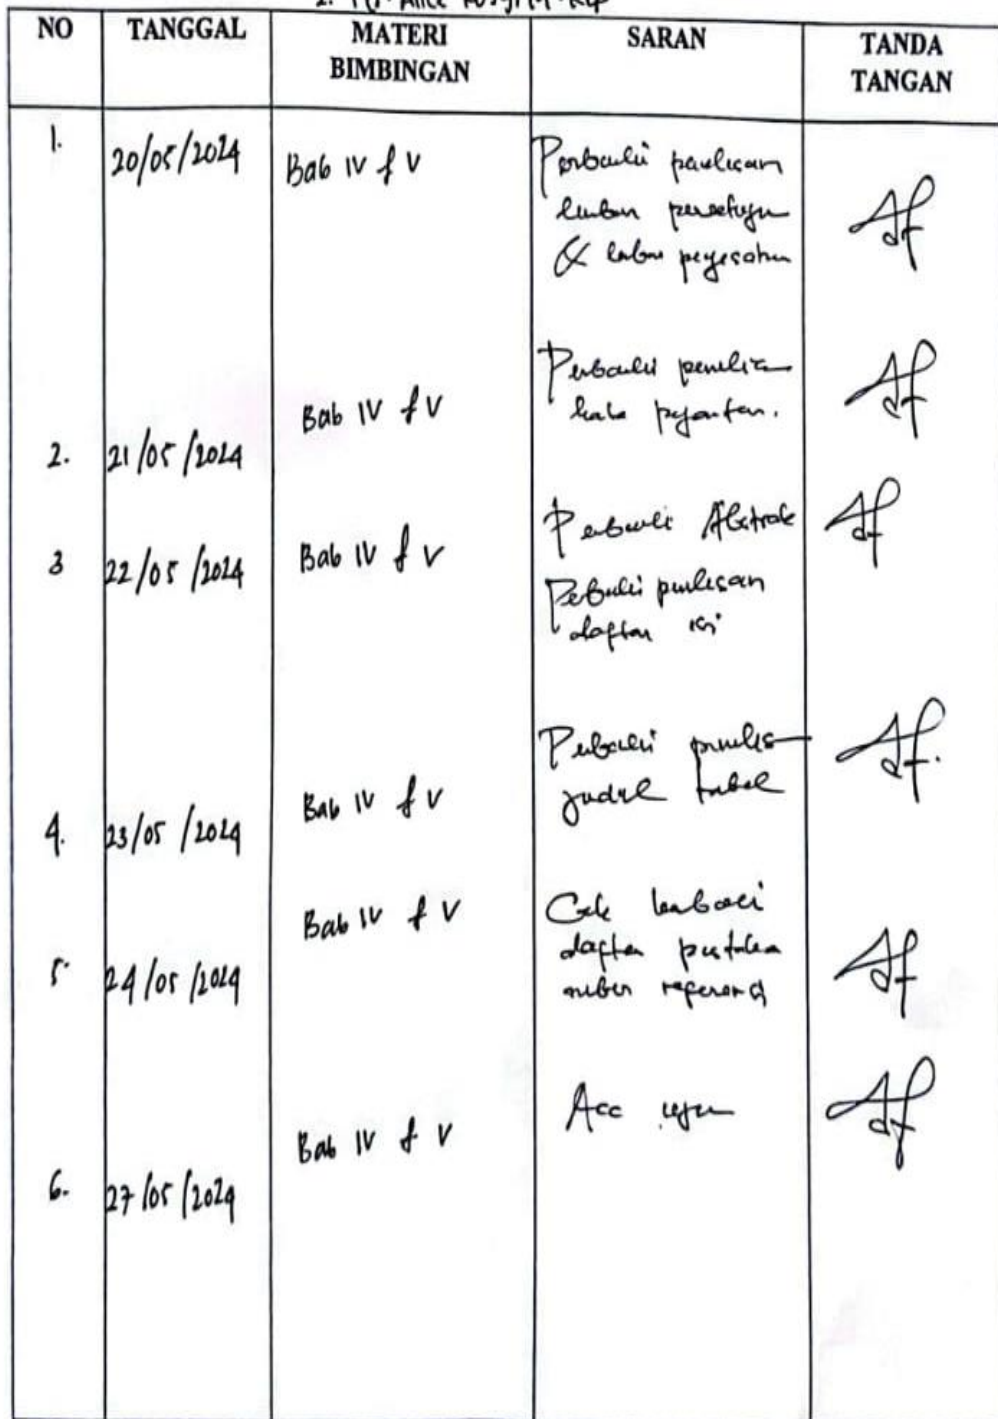 NO TANGGAL MATERI BIMBINGAN SARAN TANDA TANGAN
1. 20/05/2024 Bab IV & V Perbaiki penulisan
lembar persetujuan
& lembar pengesahan
2. 21/05/2024 Bab IV & V Perbaiki penulisan
kata pengantar.
3 22/05/2024 Bab IV & V Perbaiki Abstrak
Perbaiki penulisan
daftar isi
4. 23/05/2024 Bab IV & V Perbaiki penulisan
judul tabel
5. 24/05/2024 Bab IV & V Cek kembali
daftar pustaka
sumber referensi
6. 27/05/2024 Bab IV & V Acc ujian